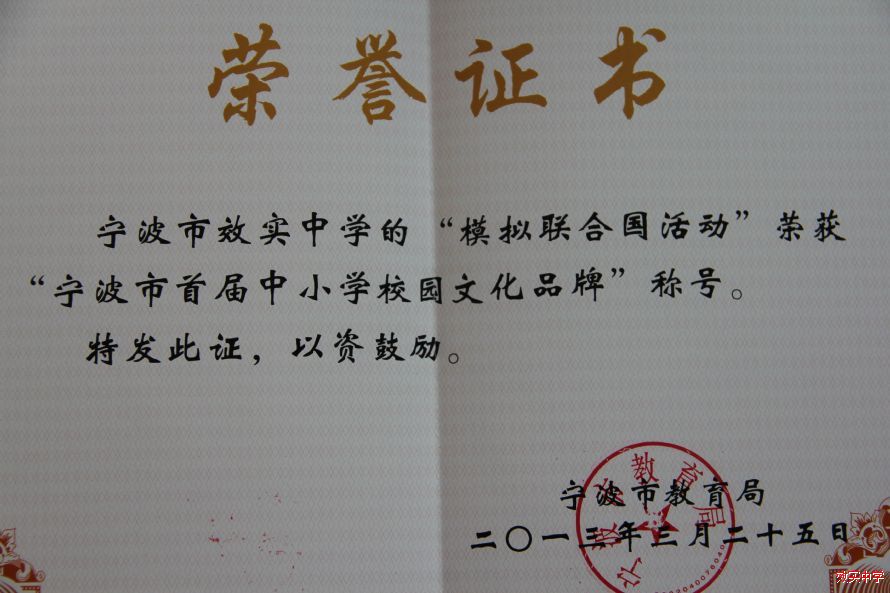 荣誉证书
宁波市效实中学的“模拟联合国活动”荣获
“宁波市首届中小学校园文化品牌”称号。
特发此证，以资鼓励。
宁波市教育局
二〇一三年三月二十五日
效实中学